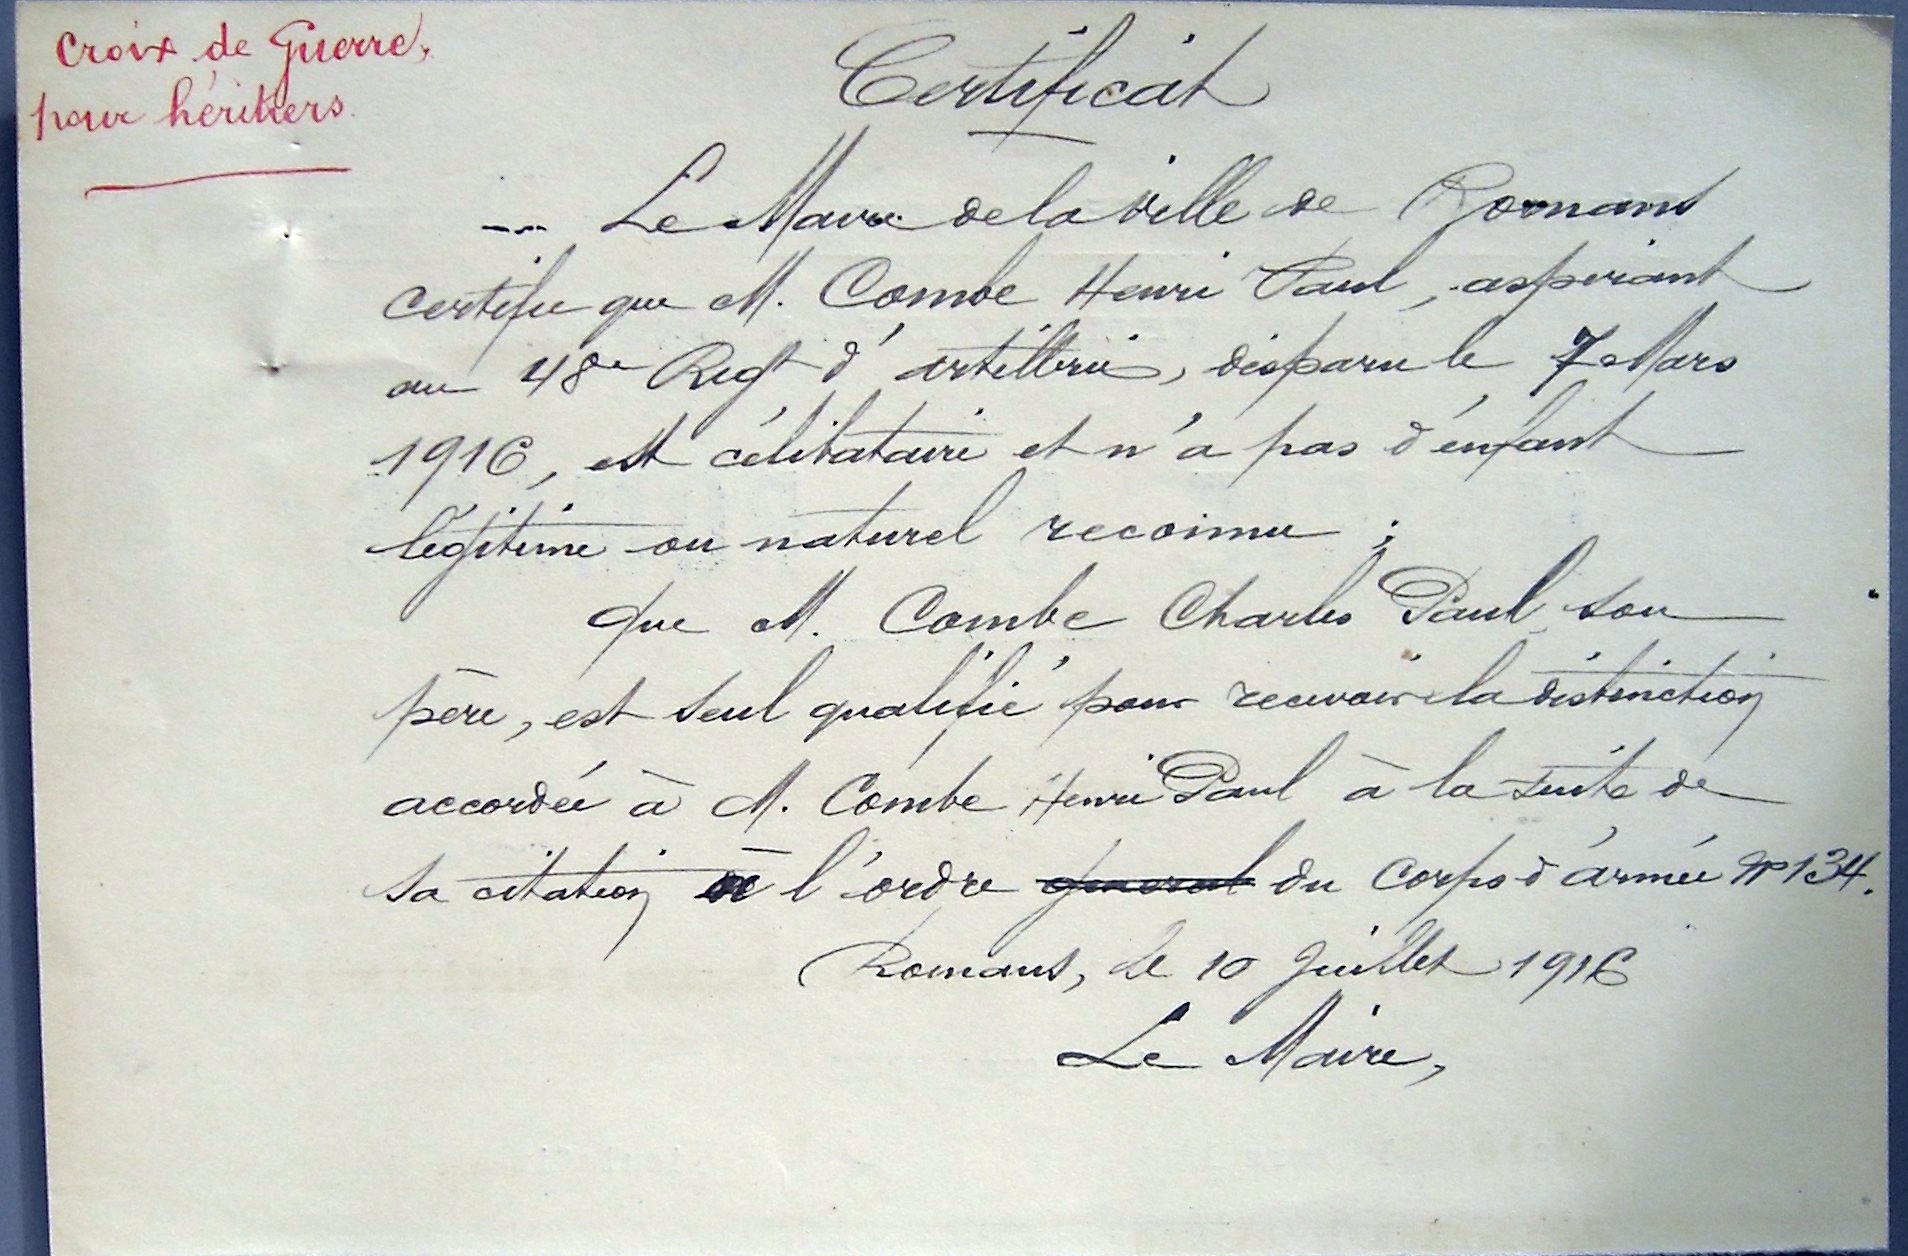 Croix de Guerre,
pour héritiers.
Certificat
Le Maire de la ville de Romans
certifie que M. Combe Henri Paul, aspirant
au 48e Regt d'artillerie, disparu le 7 Mars
1916, est célibataire et n'a pas d'enfant
légitime ou naturel reconnu ;
que M. Combe Charles Paul son
père, est seul qualifié pour recevoir la distinction
accordée à M. Combe Henri Paul à la suite de
sa citation à l'ordre general du Corps d'armée No 134.
Romans, le 10 Juillet 1916
Le Maire,